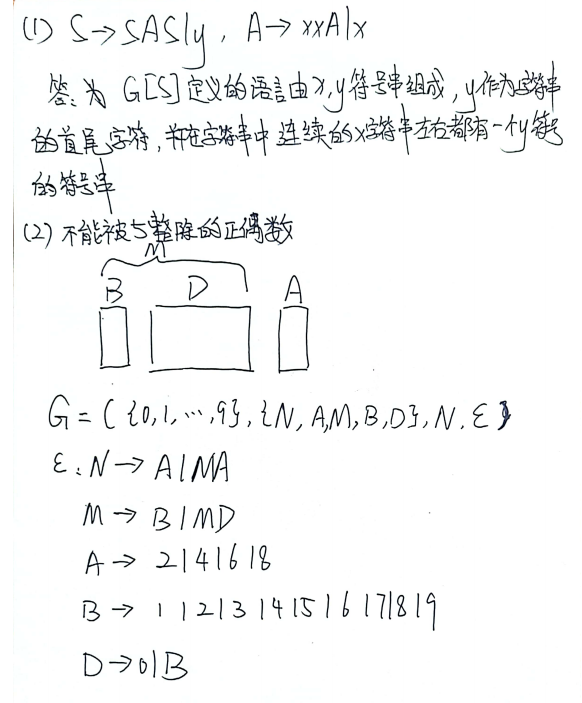 (1) S→SAS|y, A→xxA|x
答: 为 G[S]定义的语言由x,y符号串组成, y作为字符串
的首尾字符, 并在字符串中 连续的x字符串左右都有一个y符号
的符号串
(2) 不能被5整除的正偶数
M
B D A
G = ( {0,1,…,9}, {N, A,M, B,D}, N, ε )
ε: N → A|MA
M → B|MD
A → 2|4|6|8
B → 1|2|3|4|5|6|7|8|9
D→0|B